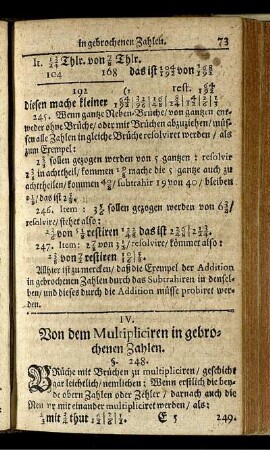 in gebrochenen Zahlen. 73
It. 13/24 Thlr. von 7/8 Thlr.
104 168 das ist 104/192 von 168/192
192 (: rest. 64/192
diesen mache kleiner
245. Wenn gantze Neben-Brüche / von gantzen ent-
weder ohne Brüche / oder mit Brüchen abzuziehen / müs-
sen alle Zahlen in gleiche Brüche resolviret werden / als
zum Exempel:
2 3/8 sollen gezogen werden von 5 gantzen : resolvir
2 3/8 in achttheil / kommen 19/8 mache die 5 gantze auch zu
achttheilen / kommen 40/8 / subtrahir 19 von 40 / bleiben
21/8 / das ist 2 5/8.
246. Item: sollen gezogen werden von 6 3/4 /
resolvir / stehet also:
von restiren das ist
247. Item: von resolvire / kömmet also:
von restiren
Allhier ist zu mercken / daß die Exempel der Addition
in gebrochenen Zahlen durch das Subtrahiren in densel-
ben / und dieses durch die Addition müsse probiret wer-
den.
IV.
Von dem Multipliciren in gebro-
chenen Zahlen.
§. 248.
BRüche mit Brüchen zu multipliciren / geschicht
gar leichtlich / nemlichen ; Wenn erstlich die bey-
de obern Zahlen oder Zehler / darnach auch die
Nenner mit einander multipliciret werden / als:
mit thut E 5 249.